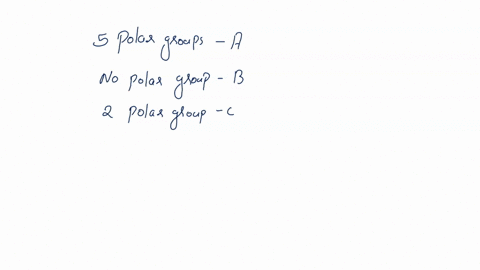 5 polar groups - A
No polar group - B
2 polar group - C